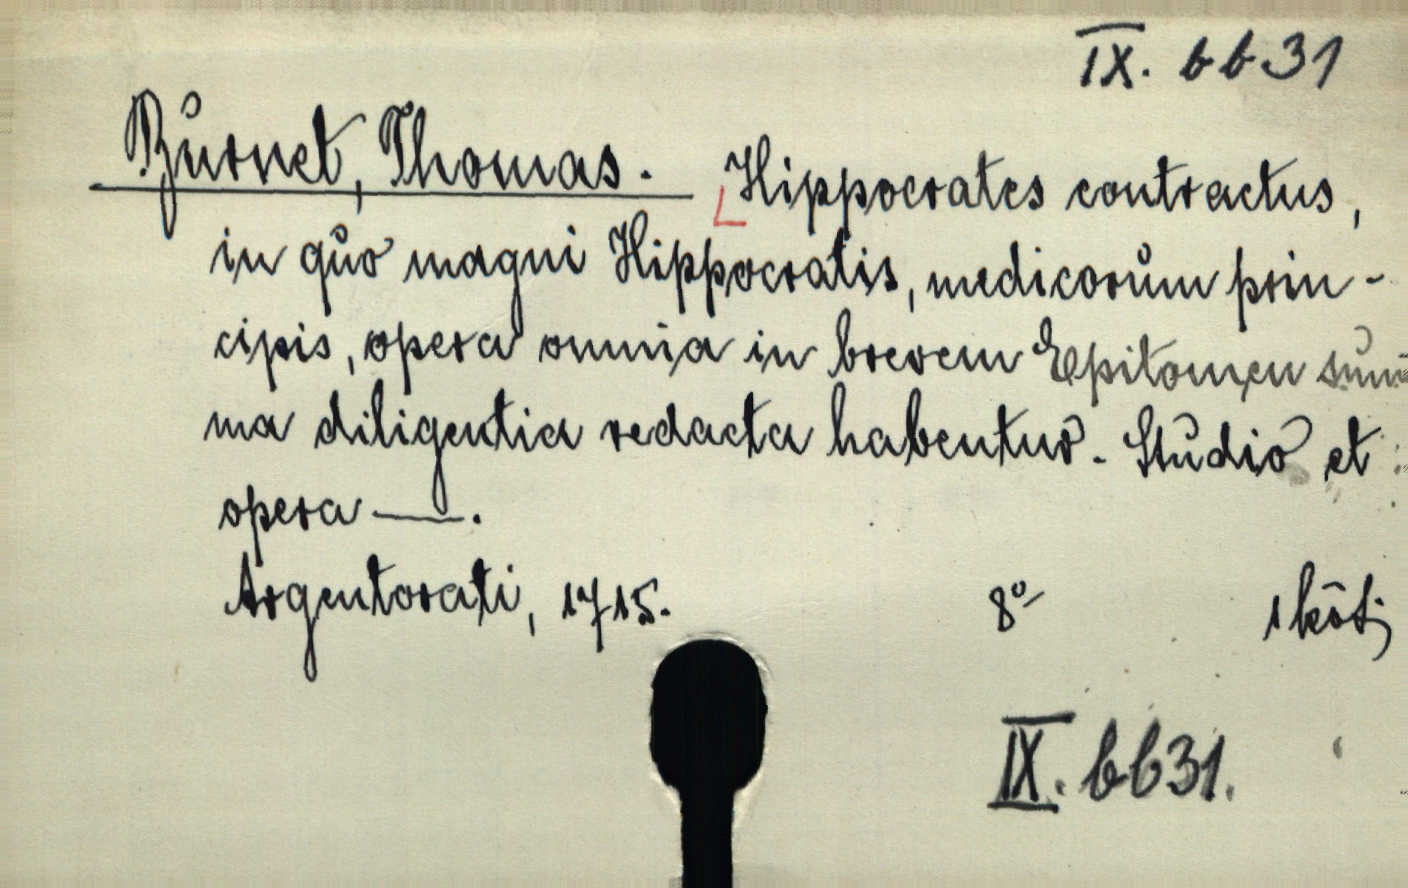 IX. bb 31
Burnet, Thomas. Hippocrates contractus,
in quo magni Hippocratis, medicorum prin-
cipis, opera omnia in brevem Epitomen sum̄
ma diligentia redacta habentur. Studio et
opera —.
Argentorati, 1715. 8° 1 köt.
IX. bb31.